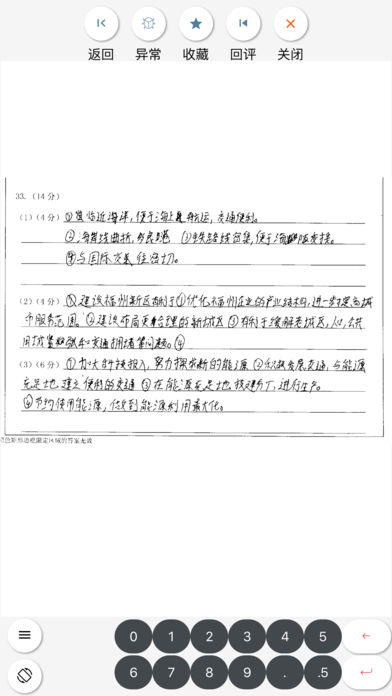 返回 异常 收藏 回评 关闭
33. （14 分）
（1）（4 分）①临近海洋，便于海上航运，交通便利。
②海岸线曲折，多良港 ③铁路线密集，便于海陆联运。
④与国际交往密切。
（2）（4 分）①建设福州新区有利于①优化福州企业的产业结构，进一步提高城
市服务范围 ②建设布局更合理的新城区 ③有利于缓解老城区，人口，公共
用地紧张和交通拥堵等问题。④
（3）（6 分）①加大科技投入，努力探索新的能源 ②积极发展交通，与能源
充足地建立便利的交通 ③在能源充足地投建工厂，进行生产。
④节约使用能源，做到能源利用最大化。
色矩形边框限定区域的答案无效
0 1 2 3 4 5
6 7 8 9 . .5